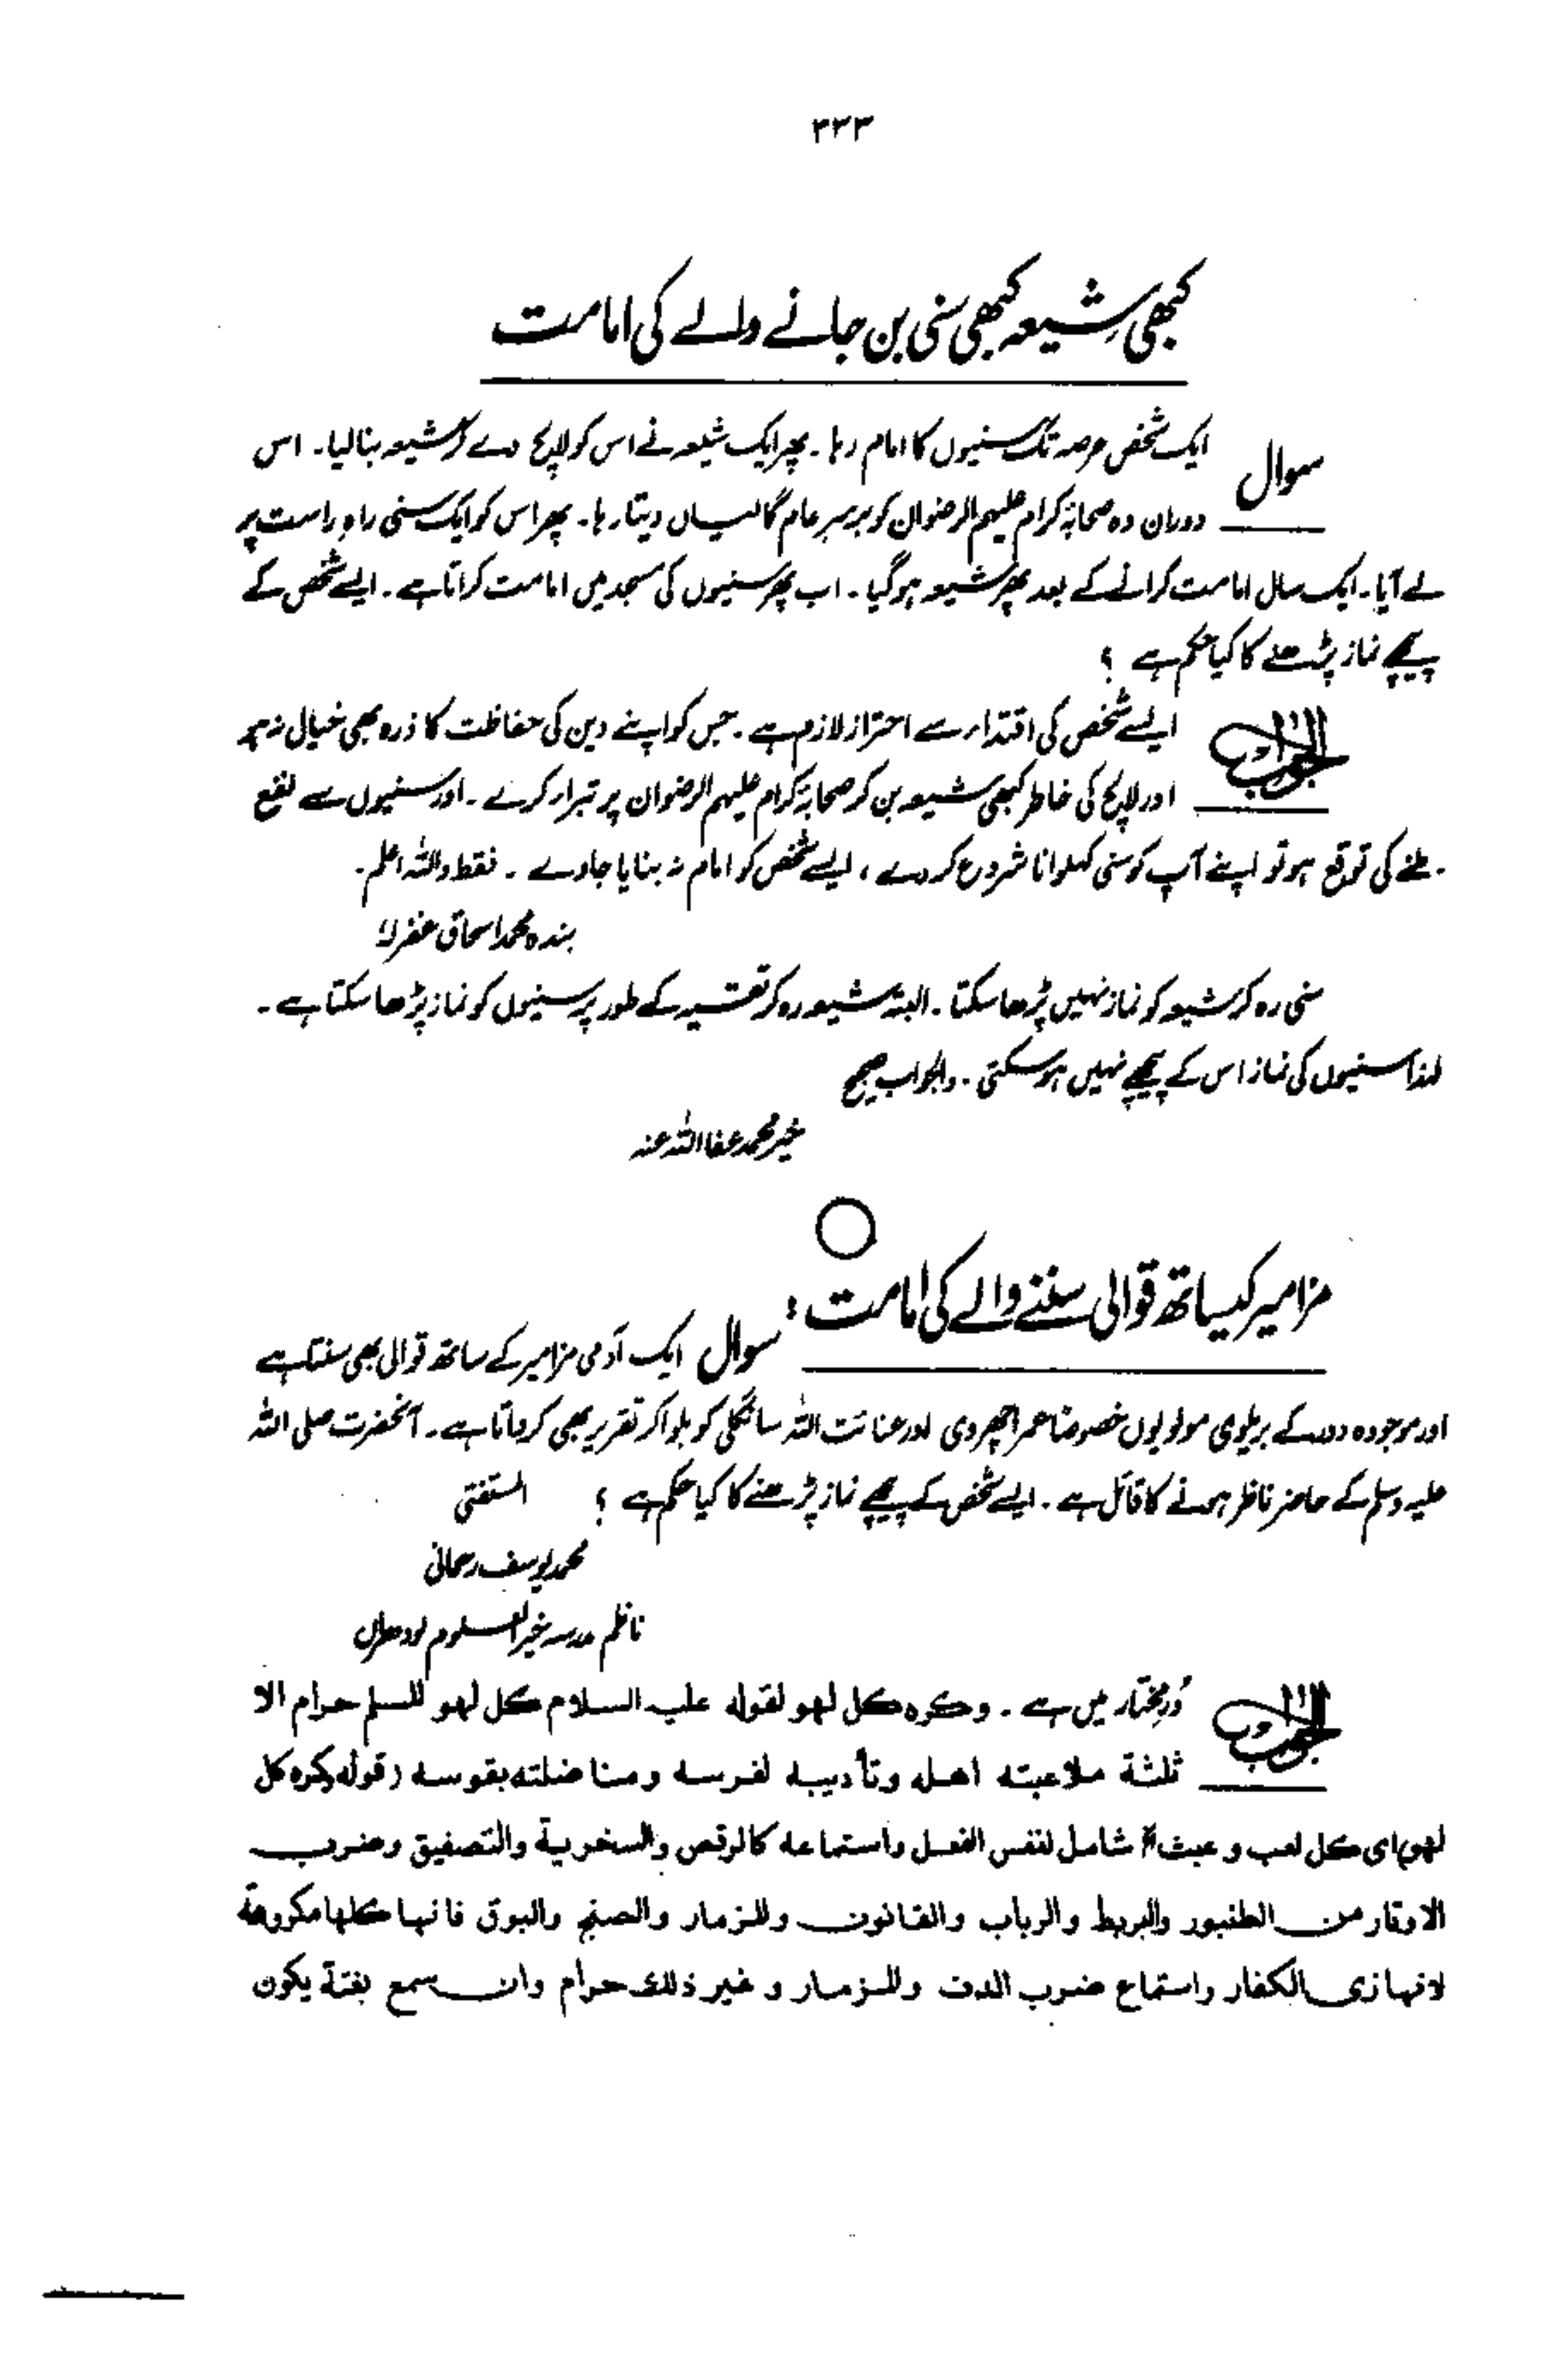 ۳۳۳
کبھی شیعہ کبھی سنی بن جانے والے کی امامت
سوال ایک شخص عرصہ تک سنیوں کا امام رہا۔ پھر ایک شیعہ نے اس کو لالچ دے کر شیعہ بنا لیا۔ اس
دوران وہ صحابہ کرام علیہم الرضوان کو برسرِ عام گالیاں دیتا رہا۔ پھر اس کو ایک سنی راہِ راست پر
لے آیا۔ ایک سال امامت کرانے کے بعد پھر شیعہ ہو گیا۔ اب پھر سنیوں کی مسجد میں امامت کراتا ہے۔ ایسے شخص کے
پیچھے نماز پڑھنے کا کیا حکم ہے ؟
الجواب ایسے شخص کی اقتداء سے احتراز لازم ہے۔ جس کو اپنے دین کی حفاظت کا ذرہ بھی خیال نہ ہو
اور لالچ کی خاطر کبھی شیعہ بن کر صحابہ کرام علیہم الرضوان پر تبراء کرے۔ اور سنیوں سے نفع
ملنے کی توقع ہو تو اپنے آپ کو سنی کہلوانا شروع کر دے ، ایسے شخص کو امام نہ بنایا جاوے ۔ فقط واللہ اعلم۔
بندہ محمد اسحاق غفرلہ
سنی رہ کر شیعہ کو نماز نہیں پڑھا سکتا۔ البتہ شیعہ رہ کر تقیہ کے طور پر سنیوں کو نماز پڑھا سکتا ہے۔
لہذا سنیوں کی نماز اس کے پیچھے نہیں ہو سکتی۔ والجواب صحیح
خیر محمد عفا اللہ عنہ
مزامیر کیساتھ قوالی سننے والے کی امامت :
سوال ایک آدمی مزامیر کے ساتھ قوالی بھی سنتا ہے
اور موجودہ دور کے بریلوی مولویوں خصوصاً عمر اچھروی اور عنائت اللہ سانگلی کو بلوا کر تقریر بھی کرواتا ہے۔ آنحضرت صلی اللہ
علیہ وسلم کے حاضر ناظر ہونے کا قائل ہے۔ ایسے شخص کے پیچھے نماز پڑھنے کا کیا حکم ہے ؟ المستفتی
محمد یوسف رحمانی
ناظم مدرسہ خیر العلوم لودھراں
الجواب دُرِمختار میں ہے ۔ وكره كل لهو لقوله عليه السلام كل لهو المسلم حرام الا
ثلثة ملاعبته اهله وتأديبه لفرسه ومناضلته بقوسه (قوله وكره كل
لهو) اى كل لعب و عبث الخ شامل لنفس الفعل واستماعه كالرقص والسخرية والتصفيق وضرب
الاوتار من الطنبور والبربط والرباب والقانون والمزمار والصنج والبوق فانها كلها مكروهة
لانها زى الكفار واستماع ضرب الدف والمزمار و غير ذلك حرام وان سمع بغتة يكون